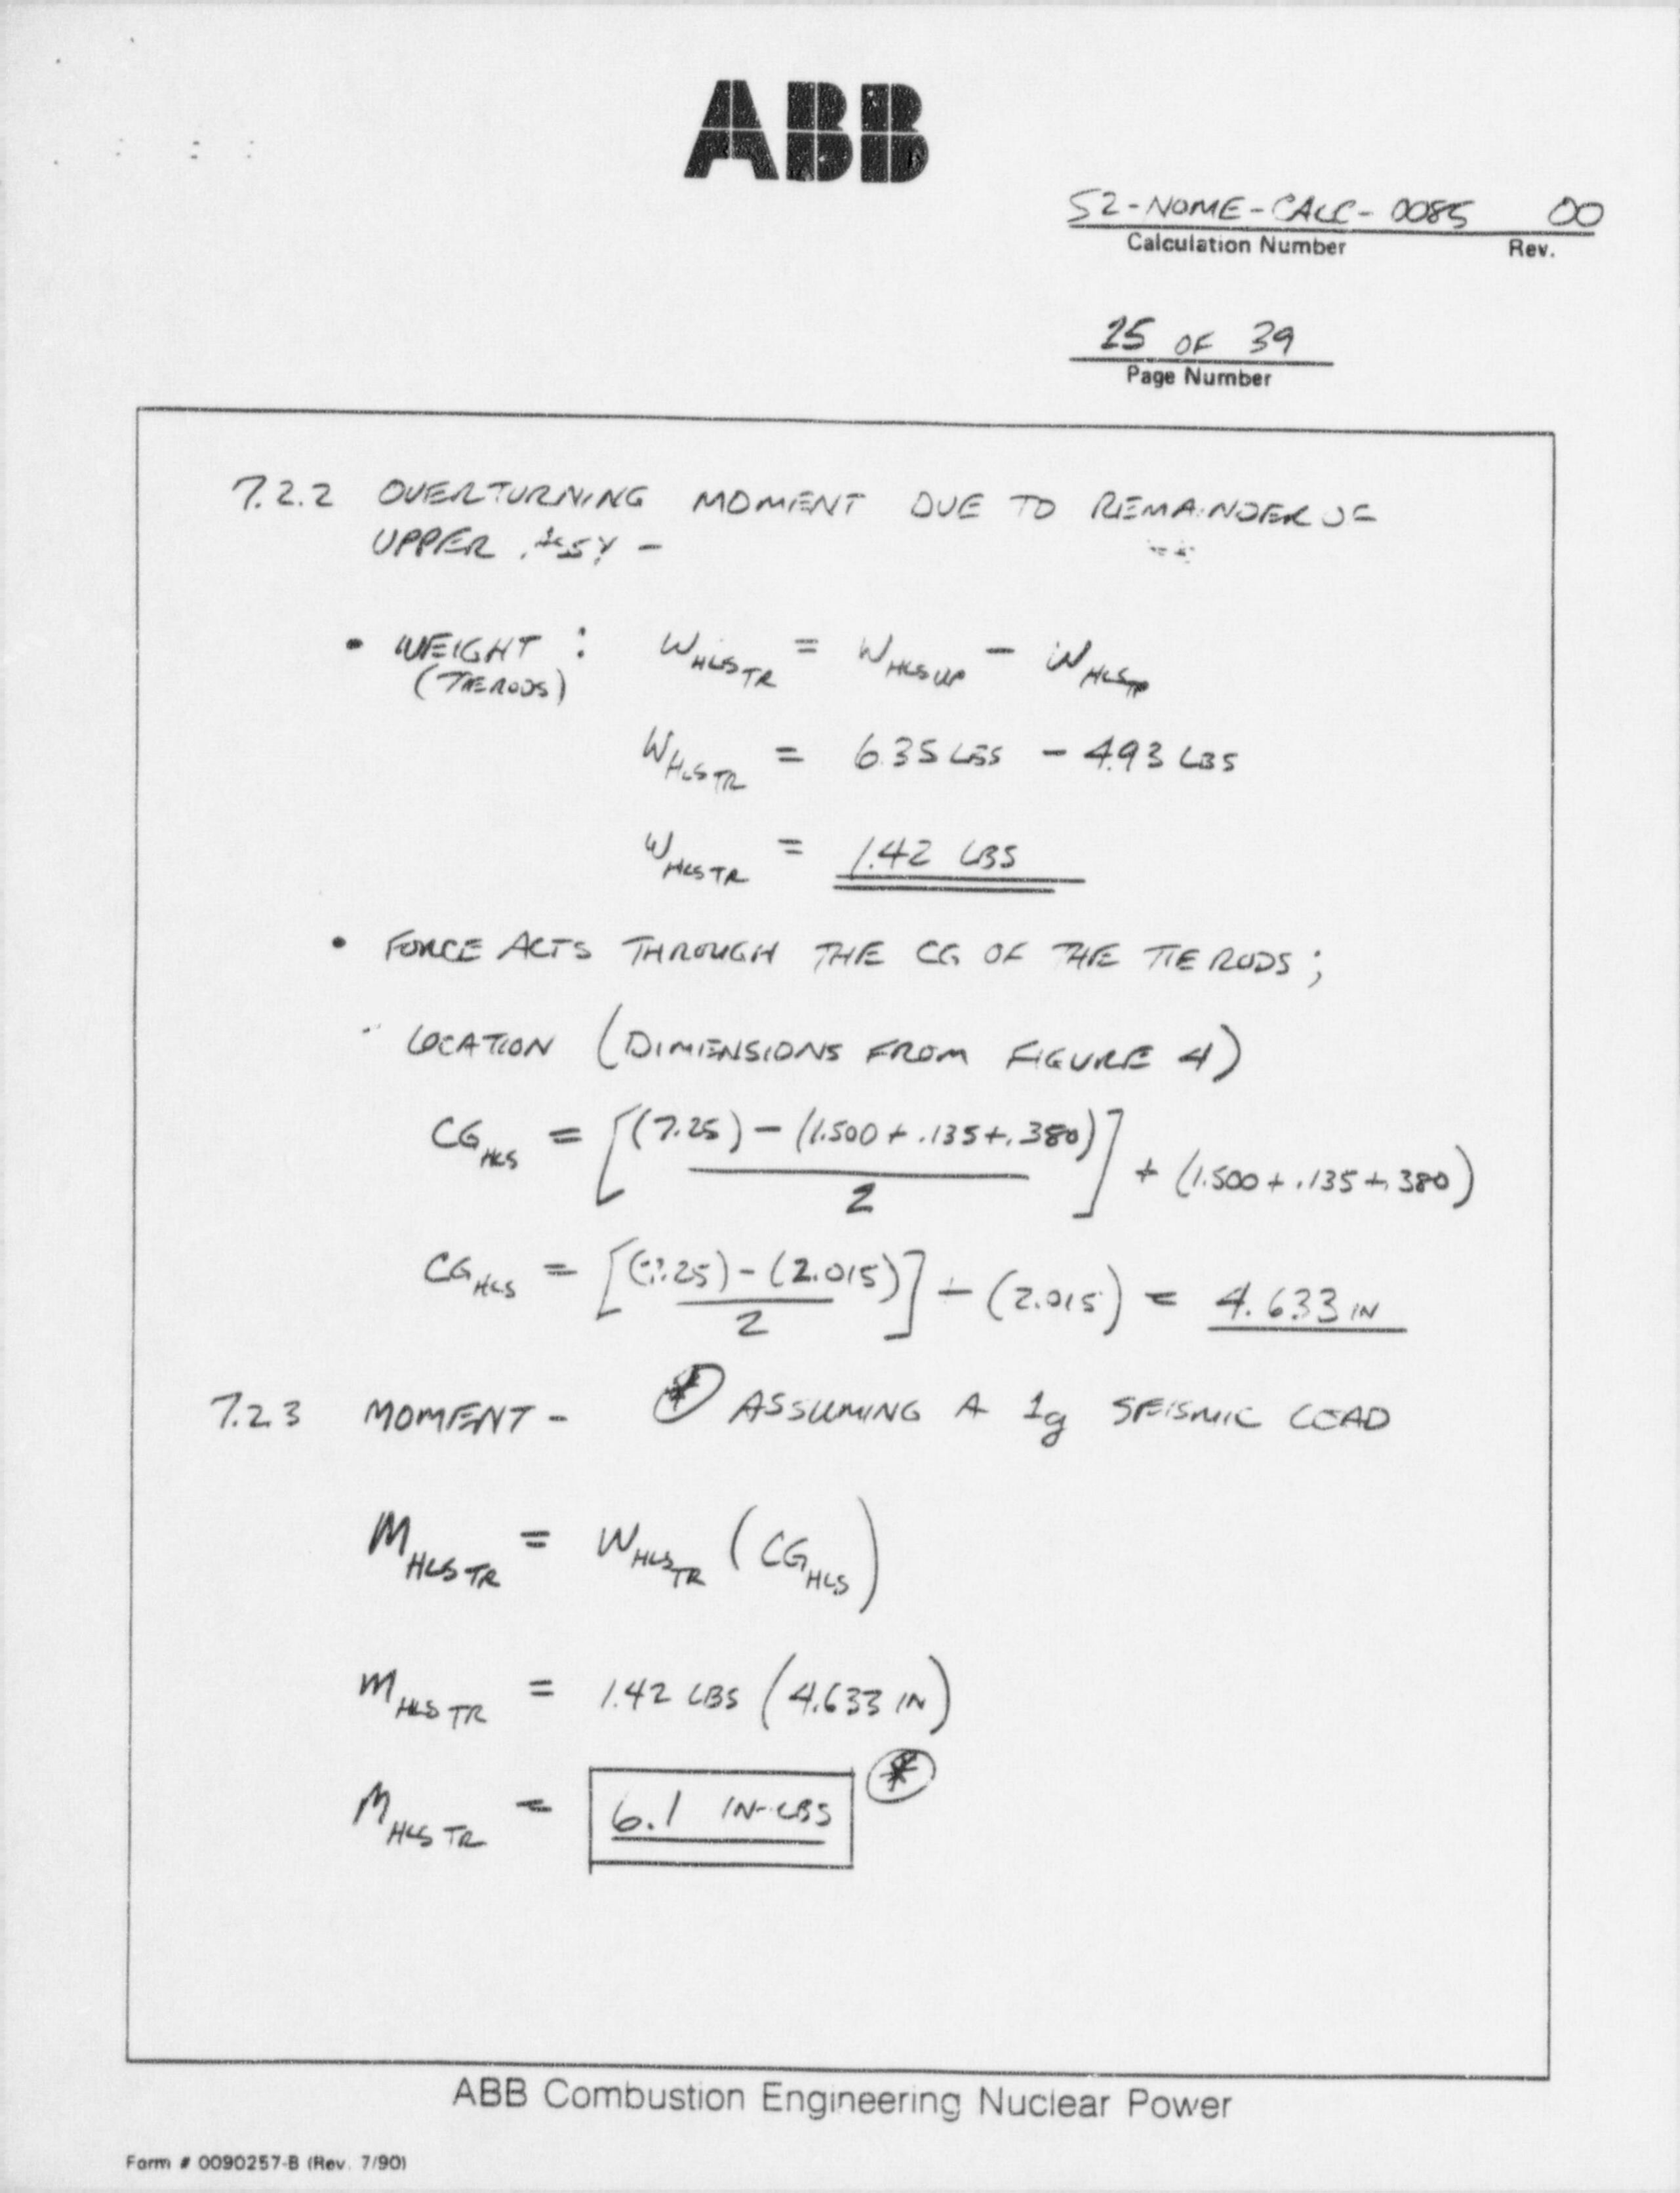 ABB
S2-NOME-CALC-0085 00
Calculation Number Rev.
25 OF 39
Page Number
7.2.2 OVERTURNING MOMENT DUE TO REMAINDER OF
UPPER ASSY -
• WEIGHT : W HLS TR = W HLS UP - W HLS TP
(TIE RODS)
W HLS TR = 6.35 LBS - 4.93 LBS
W HLS TR = 1.42 LBS
• FORCE ACTS THROUGH THE CG OF THE TIE RODS ;
LOCATION (DIMENSIONS FROM FIGURE 4)
CG HLS = [(7.25) - (1.500 + .135 + .380) / 2] + (1.500 + .135 + .380)
CG HLS = [(7.25) - (2.015) / 2] + (2.015) = 4.633 IN
7.2.3 MOMENT - * ASSUMING A 1g SEISMIC LOAD
M HLS TR = W HLS TR (CG HLS)
M HLS TR = 1.42 LBS (4.633 IN)
M HLS TR = 6.1 IN-LBS *
ABB Combustion Engineering Nuclear Power
Form # 0090257-B (Rev. 7/90)